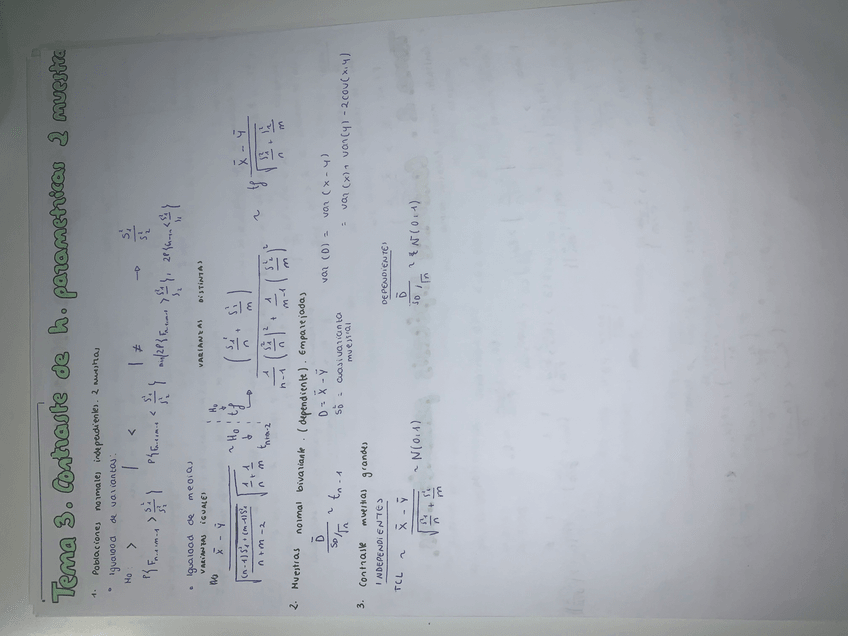 Tema 3. Contraste de h. parametricas 2 muestra
1. Poblaciones normales independientes. 2 muestras
• Igualdad de varianzas:
H0: > | < | ≠ → S₁²/S₂²
P{F n-1, m-1 > S₁²/S₂²} P{F n-1, m-1 < S₁²/S₂²} min{2P{F n-1, m-1 > S₁²/S₂²}, 2P{F n-1, m-1 < S₁²/S₂²}}
• Igualdad de medias
VARIANZAS IGUALES VARIANZAS DISTINTAS
X̄ - Ȳ / √((n-1)S₁²+(m-1)S₂² / n+m-2) √(1/n + 1/m) ~ H0: t n+m-2
H0: tf → f: (S₁²/n + S₂²/m)² / (1/n-1 (S₁²/n)² + 1/m-1 (S₂²/m)²) ~ tf X̄ - Ȳ / √(S₁²/n + S₂²/m)
2. Muestras normal bivariante. (dependiente). Emparejadas
D̄ / S_D/√n ~ t n-1 D = X̄ - Ȳ var (D) = var (x - y)
S_D² = cuasivarianza muestral = var(x) + var(y) - 2cov(x,y)
3. Contraste muestras grandes
INDEPENDIENTES DEPENDIENTE:
TCL ~ X̄ - Ȳ / √(S₁²/n + S₂²/m) ~ N(0,1) D̄ / S_D/√n ~ N(0,1)